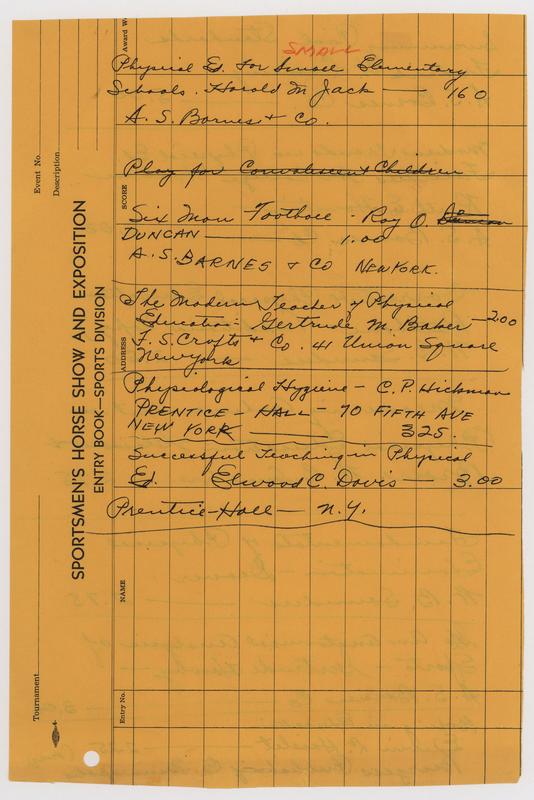 SMALL
Physical Ed. for Small Elementary
Schools. Harold M. Jack — 160
A. S. Barnes & Co.
Play for Convalescent Children
Six Man Football - Ray O.
DUNCAN — 1.00
A. S. BARNES & CO NEW YORK.
The Modern Teacher of Physical
Education - Gertrude M. Baker — 2.00
F. S. Crofts & Co. 41 Union Square
New York
Physiological Hygiene - C. P. Hickman
PRENTICE - HALL - 70 FIFTH AVE
NEW YORK — 325.
Successful Teaching in Physical
Ed. Elwood C. Davis — 3.00
Prentice-Hall — N.Y.
SPORTSMEN'S HORSE SHOW AND EXPOSITION
ENTRY BOOK—SPORTS DIVISION
Tournament
Event No.
Description
Entry No.
NAME
ADDRESS
SCORE
Award W